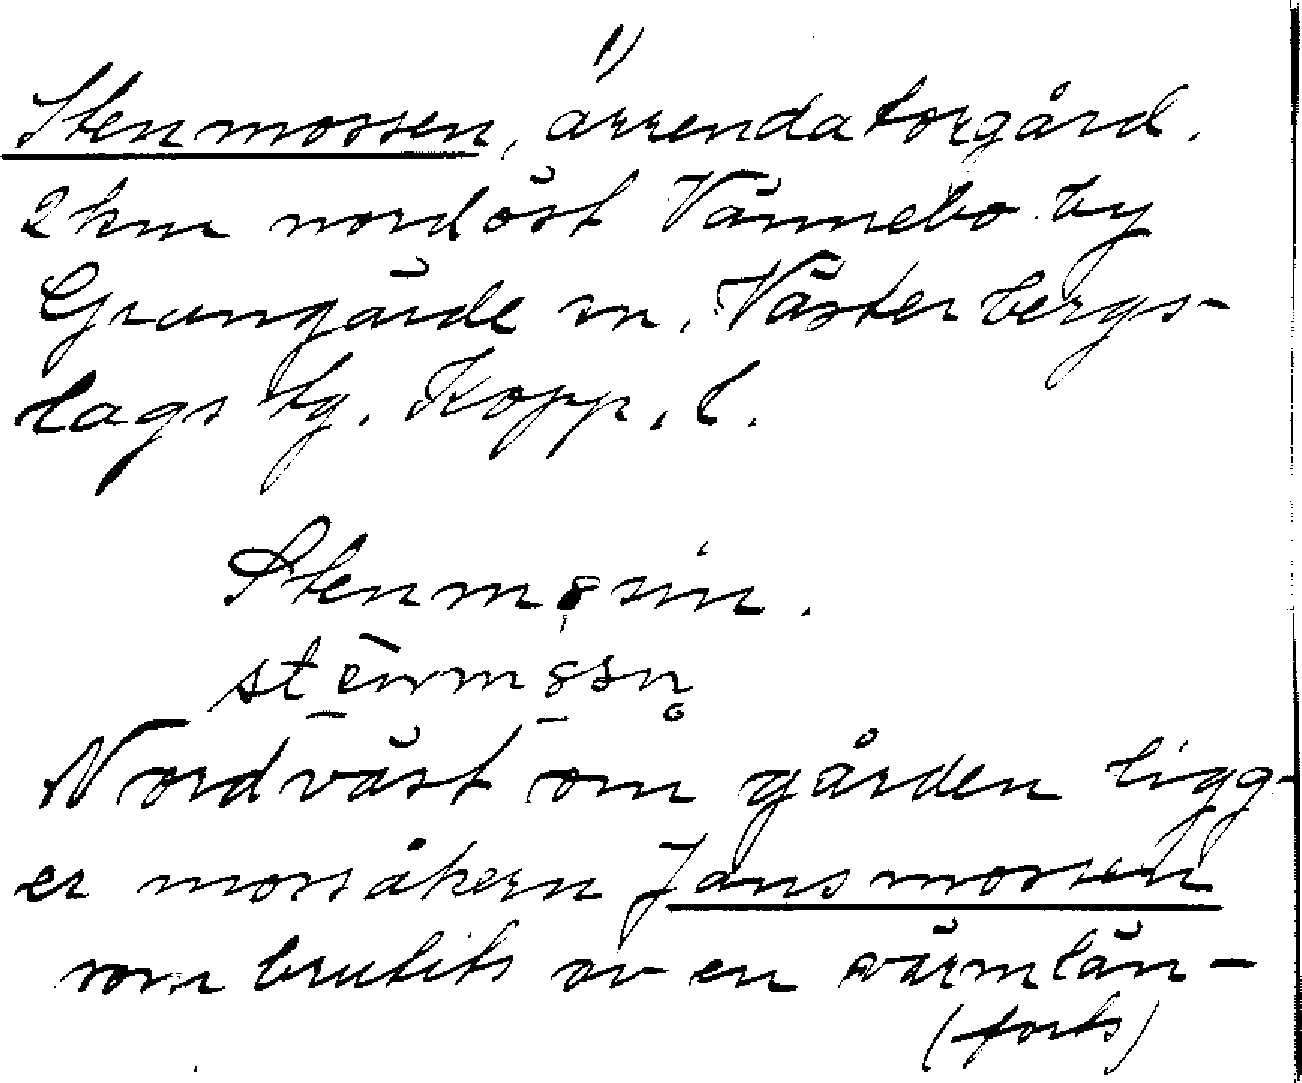 1)
Stenmossen, arrendatorgård.
2 km nordöst Vännebo by
Grangärde sn, Västerbergs-
lags tg. Kopp. l.
Stenmosin.
Nordväst om gården ligg-
er mossåkern Jansmossen
som brutits av en värmlän-
(forts)